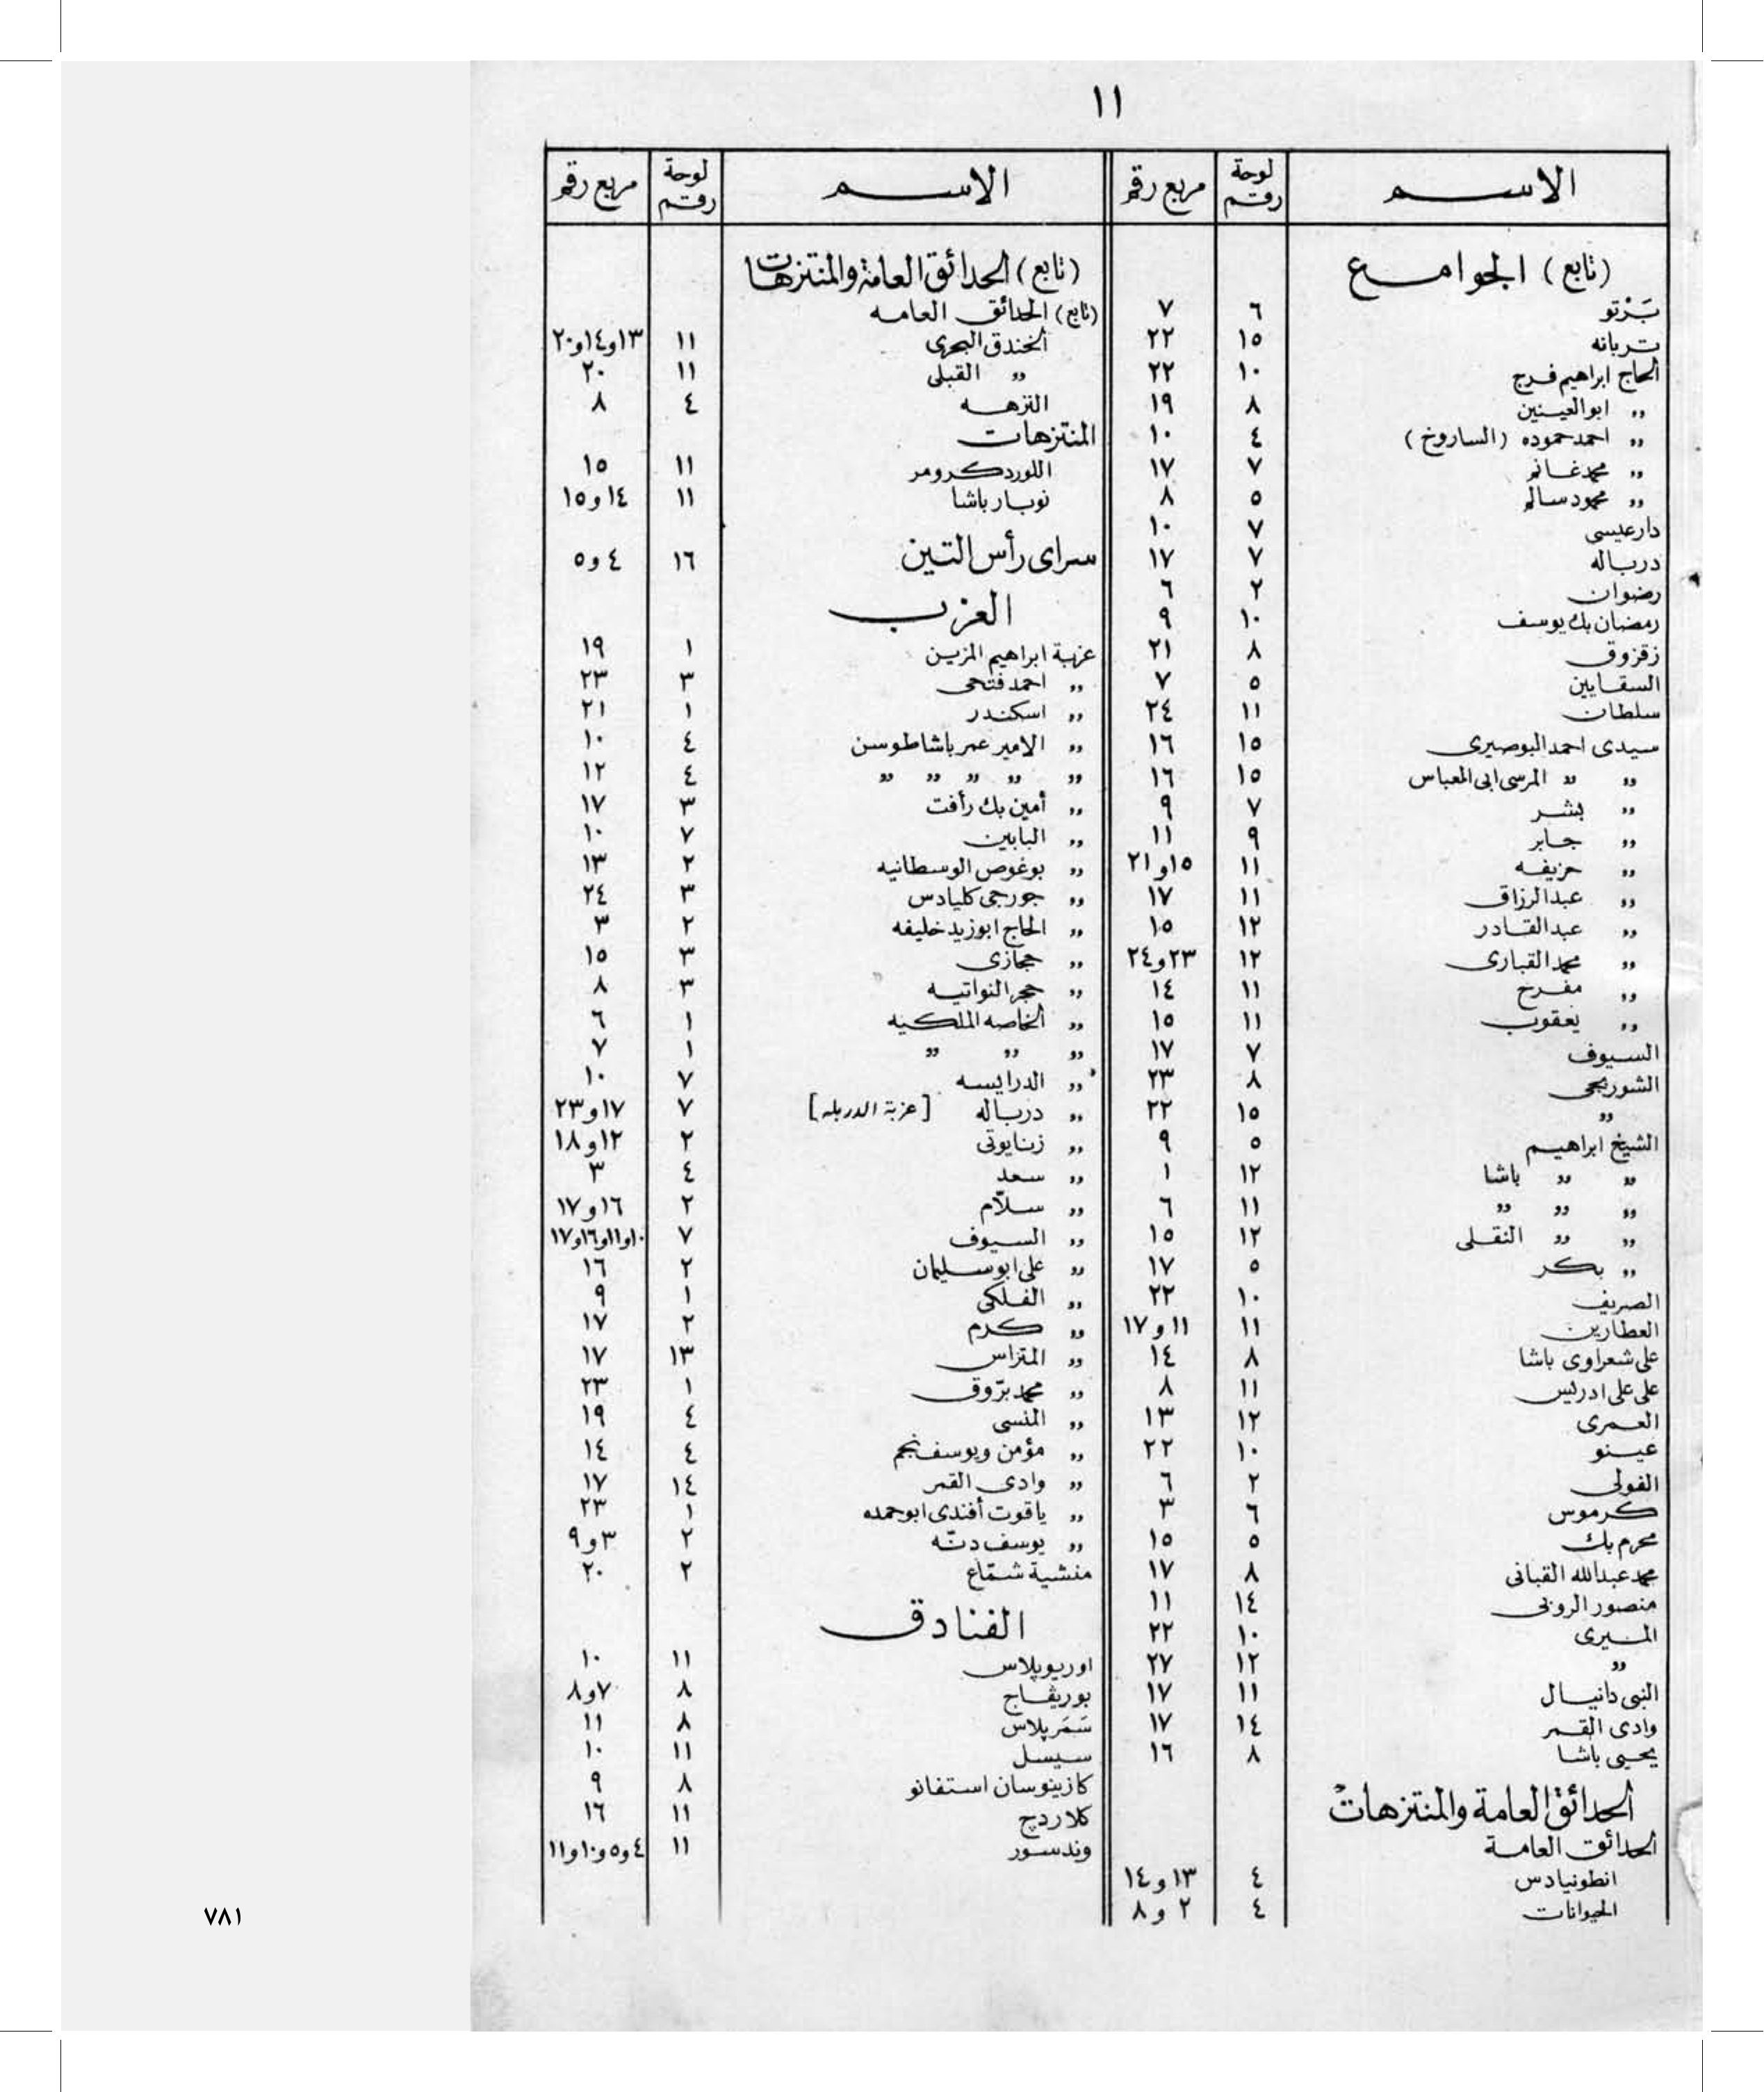 ١١
الاسم لوحة رقم مربع رقم
(تابع) الجوامع
بَرْتو ٦ ٧
تربانه ١٥ ٢٢
الحاج ابراهيم فرج ١٠ ٢٢
〃 ابو العينين ٨ ١٩
〃 احمد حموده (الساروخ) ٤ ١٠
〃 محمد غانم ٧ ١٧
〃 محمود سالم ٥ ٨
دار عيسى ٧ ١٠
درباله ٧ ١٧
رضوان ٢ ٦
رمضان بك يوسف ١٠ ٩
زقزوق ٨ ٢١
السقايين ٥ ٧
سلطان ١١ ٢٤
سيدى احمد البوصيرى ١٥ ١٦
〃 〃 المرسى ابى العباس ١٥ ١٦
〃 بشر ٧ ٩
〃 جابر ٩ ١١
〃 حزيفه ١١ ١٥ و ٢١
〃 عبد الرزاق ١١ ١٧
〃 عبد القادر ١٢ ١٥
〃 محمد القبارى ١٢ ٢٣ و ٢٤
〃 مفرح ١١ ١٤
〃 يعقوب ١١ ١٥
السيوف ٧ ١٧
الشوربجى ٨ ٢٣
〃 ١٥ ٢٢
الشيخ ابراهيم ٥ ٩
〃 〃 باشا ١٢ ١
〃 〃 〃 ١١ ٦
〃 〃 النقلى ١٢ ١٥
〃 بكر ٥ ١٧
الصريف ١٠ ٢٢
العطارين ١١ ١١ و ١٧
على شعراوى باشا ٨ ١٤
على على ادريس ١١ ٨
العمرى ١٢ ١٣
عينو ١٠ ٢٢
الفولى ٢ ٦
كرموس ٦ ٣
محرم بك ٥ ١٥
محمد عبد الله القبانى ٨ ١٧
منصور الروبى ١٤ ١١
المنيرى ١٠ ٢٢
〃 ١٢ ٢٧
النبى دانيال ١١ ١٧
وادى القمر ١٤ ١٧
يحيى باشا ٨ ١٦
الحدائق العامة والمنتزهات
الحدائق العامة
انطونيادس ٤ ١٣ و ١٤
الحيوانات ٤ ٢ و ٨
الاسم لوحة رقم مربع رقم
(تابع) الحدائق العامة والمنتزهات
(تابع) الحدائق العامه
الخندق البحرى ١١ ١٣ و ١٤ و ٢٠
〃 القبلى ١١ ٢٠
النزهه ٤ ٨
المنتزهات
اللورد كرومر ١١ ١٥
نوبار باشا ١١ ١٤ و ١٥
سراى رأس التين ١٦ ٤ و ٥
العزب
عزبة ابراهيم المزين ١ ١٩
〃 احمد فتحى ٣ ٢٣
〃 اسكندر ١ ٢١
〃 الامير عمر باشا طوسن ٤ ١٠
〃 〃 〃 〃 〃 ٤ ١٢
〃 أمين بك رأفت ٣ ١٧
〃 البابين ٧ ١٠
〃 بوغوص الوسطانيه ٢ ١٣
〃 جورجى كليادس ٣ ٢٤
〃 الحاج ابو زيد خليفه ٢ ٣
〃 حجازى ٣ ١٥
〃 حجر النواتيه ٣ ٨
〃 الخاصه الملكيه ١ ٦
〃 〃 〃 ١ ٧
〃 الدرايسه ٧ ١٠
〃 درباله [عزبة الدربله] ٧ ١٧ و ٢٣
〃 زنايوتى ٢ ١٢ و ١٨
〃 سعد ٤ ٣
〃 سلاّم ٢ ١٦ و ١٧
〃 السيوف ٧ ١٠ و ١١ و ١٦ و ١٧
〃 على ابو سليمان ٢ ١٦
〃 الفلكى ١ ٩
〃 كرم ٢ ١٧
〃 المتراس ١٣ ١٧
〃 محمد برّوق ١ ٢٣
〃 المنسى ٤ ١٩
〃 مؤمن ويوسف نجم ٤ ١٤
〃 وادى القمر ١٤ ١٧
〃 ياقوت أفندى ابو حمده ١ ٢٣
〃 يوسف دنّه ٢ ٣ و ٩
منشية شمّاع ٢ ٢٠
الفنادق
اوريوپلاس ١١ ١٠
بوريڤاج ٨ ٧ و ٨
سَمَر پلاس ٨ ١١
سيسل ١١ ١٠
كازينو سان استفانو ٨ ٩
كلاردچ ١١ ١٦
وندسور ١١ ٤ و ٥ و ١٠ و ١١
٧٨١